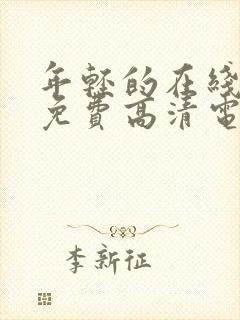 年轻的在线
免費高清電
李新征